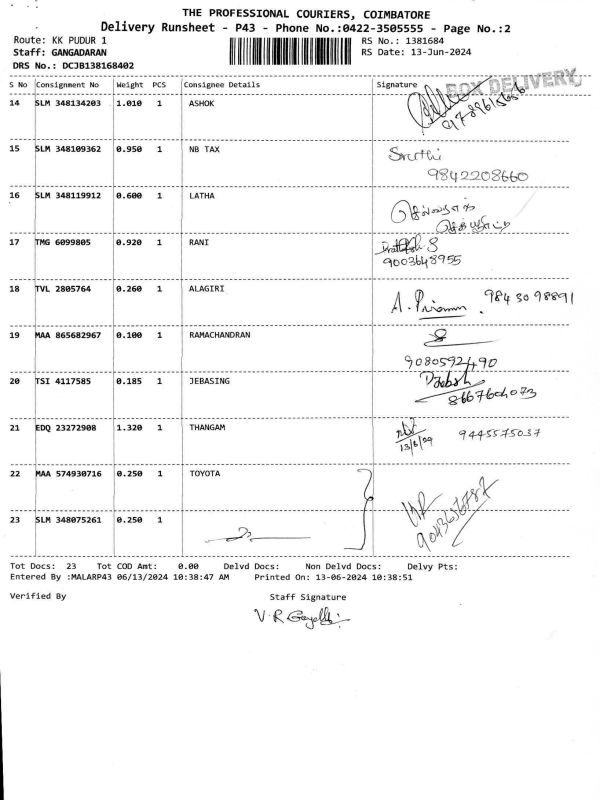 THE PROFESSIONAL COURIERS, COIMBATORE
Delivery Runsheet - P43 - Phone No.:0422-3505555 - Page No.:2
Route: KK PUDUR 1 RS No.: 1381684
Staff: GANGADARAN RS Date: 13-Jun-2024
DRS No.: DCJB138168402
S No Consignment No Weight PCS Consignee Details Signature BOX DELIVERY
14 SLM 348134203 1.010 1 ASHOK
15 SLM 348109362 0.950 1 NB TAX Sruthi
9842208660
16 SLM 348119912 0.600 1 LATHA
17 TMG 6099805 0.920 1 RANI
9003648955
18 TVL 2805764 0.260 1 ALAGIRI A. 98430 98891
19 MAA 865682967 0.100 1 RAMACHANDRAN
9080592490
20 TSI 4117585 0.185 1 JEBASING
8667604073
21 EDQ 23272908 1.320 1 THANGAM 9445575037
13/6/24
22 MAA 574930716 0.250 1 TOYOTA
23 SLM 348075261 0.250 1
Tot Docs: 23 Tot COD Amt: 0.00 Delvd Docs: Non Delvd Docs: Delvy Pts:
Entered By :MALARP43 06/13/2024 10:38:47 AM Printed On: 13-06-2024 10:38:51
Verified By Staff Signature
V.R